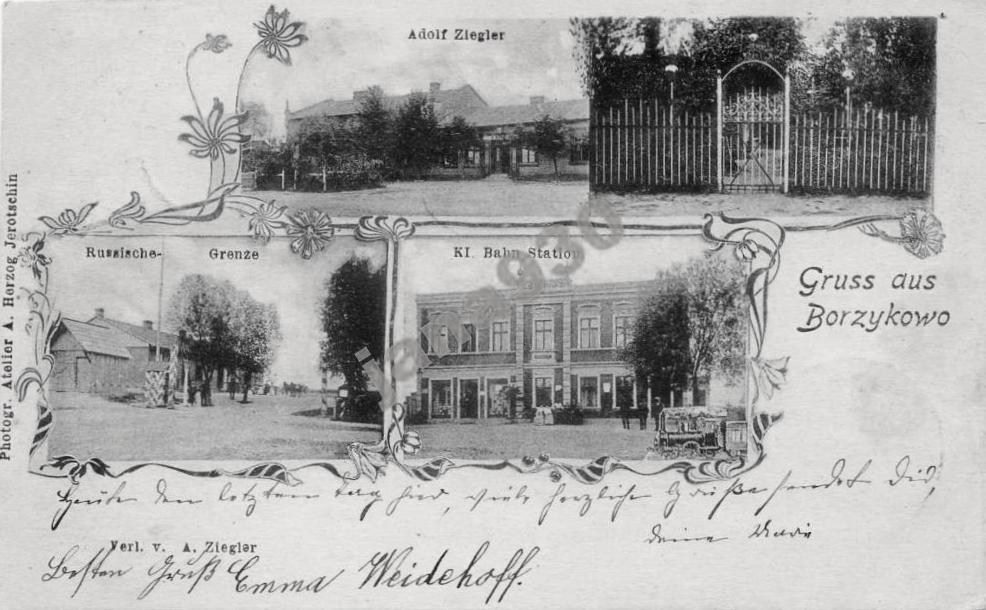 Adolf Ziegler
Russische- Grenze
Kl. Bahn Station
Gruss aus
Borzykowo
Photogr. Atelier A. Herzog Jerotschin
Heute den letzten Tag hier, viele herzliche Grüße sendet Dir,
deine Marie
Verl. v. A. Ziegler
Besten Gruß Emma Weidehoff.